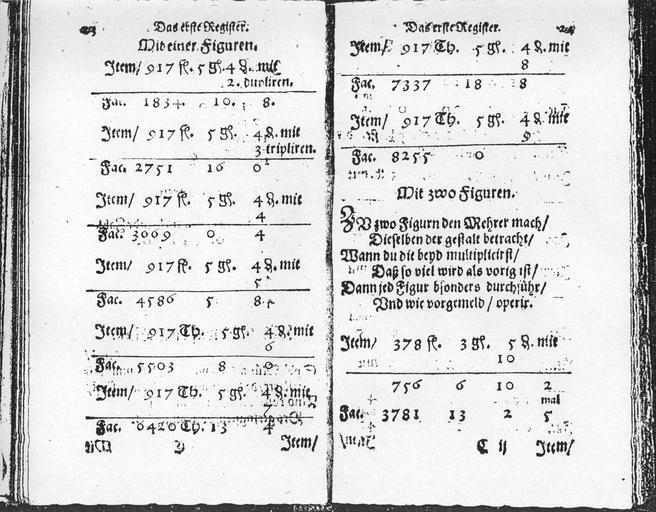 Das erste Register.
Mit einer Figuren.
Item/ 917 fl. 5 gl. 4 ₰. mit
2. dupliren.
Fac. 1834. 10. 8.
Item/ 917 fl. 5 gl. 4 ₰. mit
3 tripliren.
Fac. 2751 16 0
Item/ 917 fl. 5 gl. 4 ₰. mit
4
Fac. 3669 0 4
Item/ 917 fl. 5 gl. 4 ₰. mit
5
Fac. 4586 5 8
Item/ 917 Th. 5 gl. 4 ₰. mit
6
Fac. 5503 8 0
Item/ 917 Th. 5 gl. 4 ₰. mit
Fac. 6420 Th. 13 4
Item/
Das erste Register.
Item/ 917 Th. 5 gl. 4 ₰. mit
8
Fac. 7337 18 8
Item/ 917 Th. 5 gl. 4 ₰. mit
9
Fac. 8255 0
Mit zwo Figuren.
ZU zwo Figurn den Mehrer mach/
Dieselben der gestalt betracht/
Wann du die beyd multiplicirst/
Daß so viel wird als vorig ist/
Dann jed Figur bsonders durchführ/
Und wie vorgemeld/ operir.
Item/ 378 fl. 3 gl. 5 ₰. mit
10
756 6 10 2
mal
Fac. 3781 13 2 5
C ij Item/